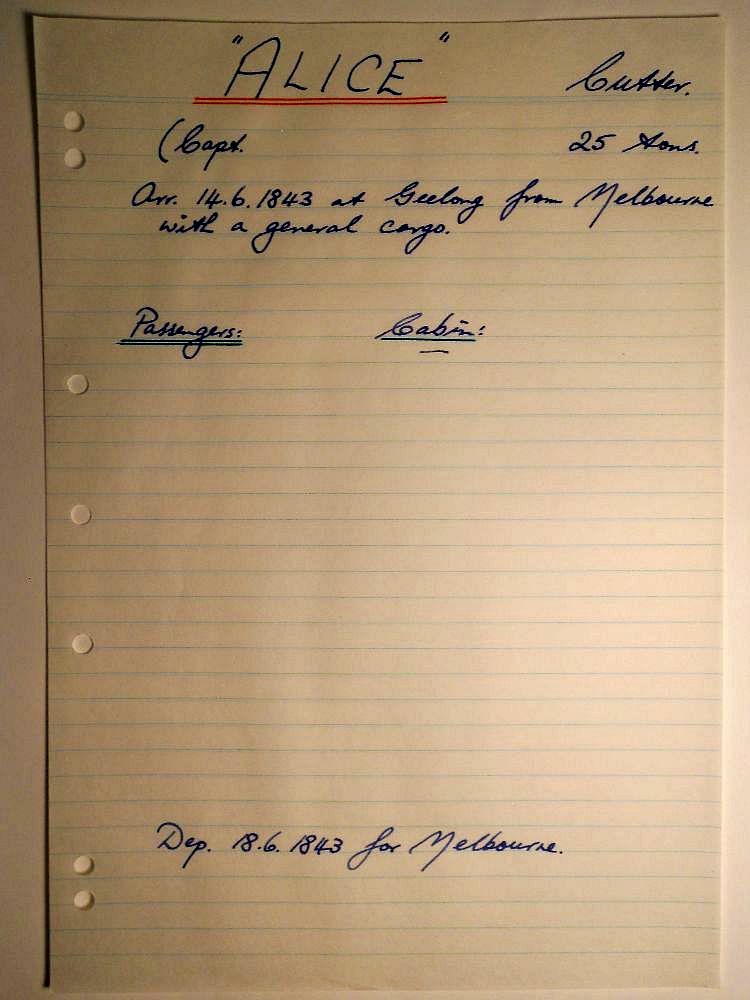 "ALICE" Cutter.
(Capt. 25 tons.
Arr. 14.6.1843 at Geelong from Melbourne
with a general cargo.
Passengers: Cabin:
Dep. 18.6.1843 for Melbourne.